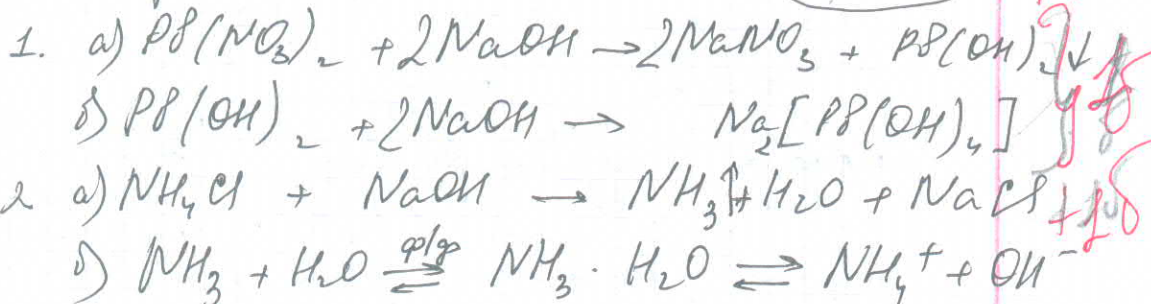 1. а) Pb(NO₃)₂ + 2NaOH → 2NaNO₃ + Pb(OH)₂↓
б) Pb(OH)₂ + 2NaOH → Na₂[Pb(OH)₄]
2 а) NH₄Cl + NaOH → NH₃↑ + H₂O + NaCl +1б
б) NH₃ + H₂O ⇄ NH₃ · H₂O ⇄ NH₄⁺ + OH⁻